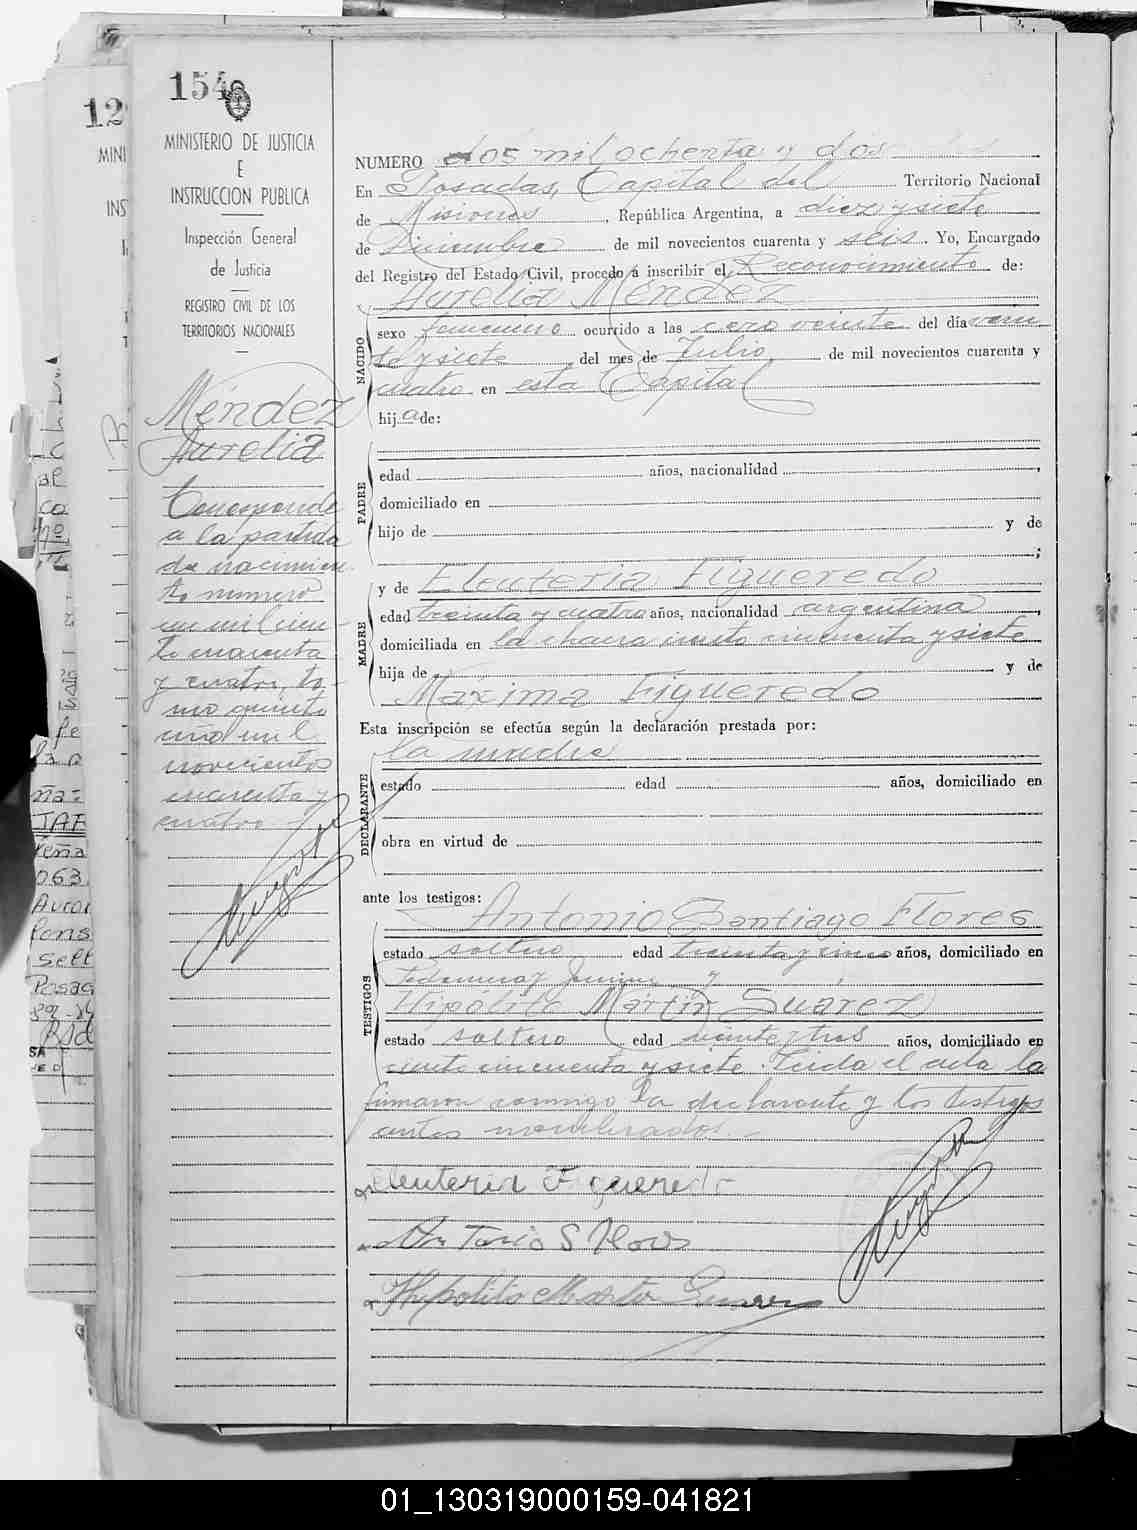 154
MINISTERIO DE JUSTICIA
E
INSTRUCCION PUBLICA
Inspección General
de Justicia
REGISTRO CIVIL DE LOS
TERRITORIOS NACIONALES
Méndez
Aurelia
Corresponde
a la partida
de nacimien
to número
un mil cien
to cuarenta
y cuatro, to-
mo quinto
año mil
novecientos
cuarenta y
cuatro
NUMERO dos mil ochenta y dos
En Posadas, Capital del Territorio Nacional
de Misiones, República Argentina, a diez y siete
de Diciembre de mil novecientos cuarenta y seis. Yo, Encargado
del Registro del Estado Civil, procedo á inscribir el Reconocimiento de:
Aurelia Méndez
NACIDO
sexo femenino ocurrido a las cero veinte del día vein
te y siete del mes de Julio, de mil novecientos cuarenta y
cuatro en esta Capital
hija de:
PADRE
edad años, nacionalidad ,
domiciliado en
hijo de y de
;
MADRE
y de Eleuteria Figueredo
edad treinta y cuatro años, nacionalidad argentina,
domiciliada en la chacra ciento cincuenta y siete
hija de y de
Máxima Figueredo
Esta inscripción se efectúa según la declaración prestada por:
DECLARANTE
la madre
estado edad años, domiciliado en
obra en virtud de
ante los testigos:
TESTIGOS
Antonio Santiago Flores
estado soltero edad treinta y cinco años, domiciliado en
y
Hipolito Martin Suarez
estado soltero edad veinte y tres años, domiciliado en
ciento cincuenta y siete. Leida el acta la
firmaron conmigo la declarante y los testigos
antes nombrados.-
Eleuteria Figueredo
Antonio S Flores
Hipolito Martin Suarez
12
MINI
INS
JAR
063
Auror
sell
Posad
01_130319000159-041821